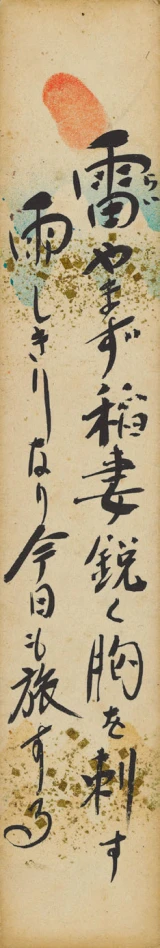 雷やまず稲妻鋭く胸を刺す
らい
雨しきりなり今日も旅する